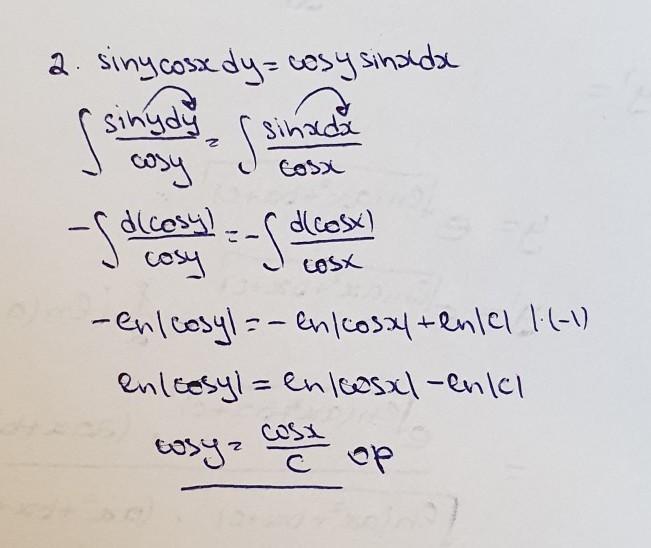 2. siny cosx dy = cosy sinx dx
∫ siny dy / cosy = ∫ sinx dx / cosx
-∫ d(cosy) / cosy = -∫ d(cosx) / cosx
-ln|cosy| = -ln|cosx| + ln|c| |·(-1)
ln|cosy| = ln|cosx| - ln|c|
cosy = cosx / C op